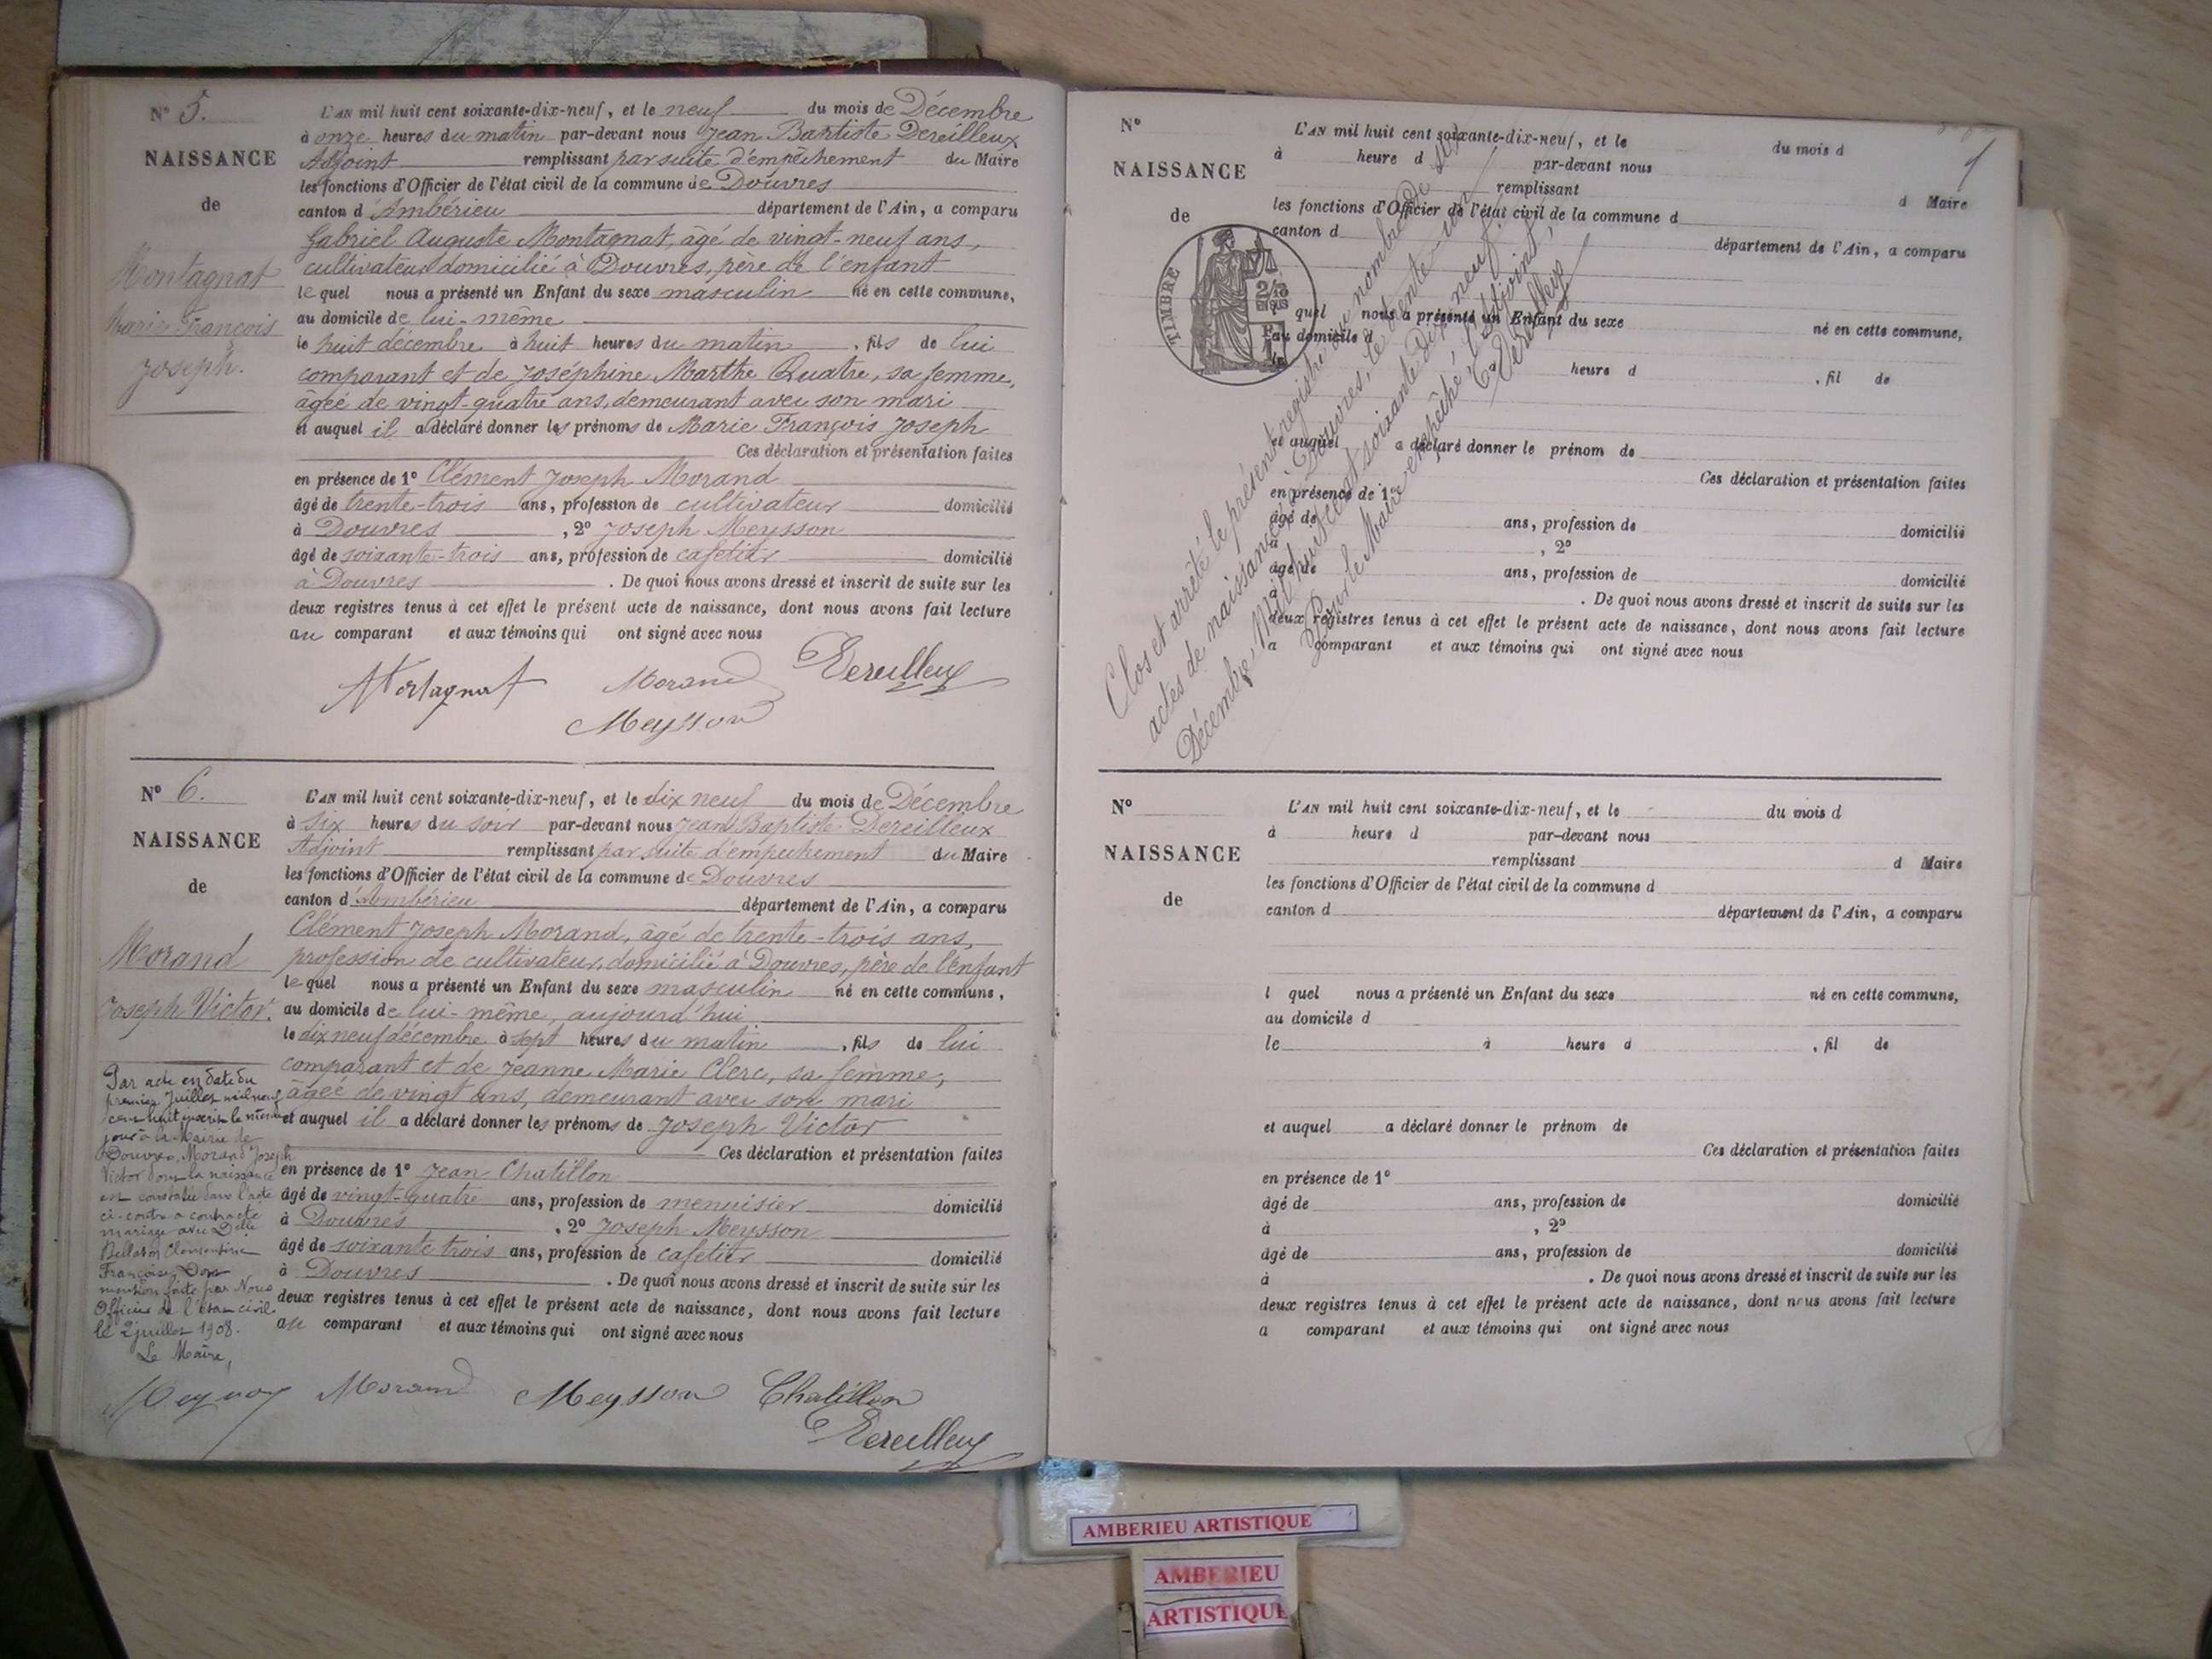 N° 5.
NAISSANCE
de
Montagnat
Marie François
Joseph.
L'AN mil huit cent soixante-dix-neuf, et le neuf du mois de Décembre
à onze heures du matin par-devant nous Jean Baptiste Dereilleux
Adjoint remplissant par suite d'empêchement du Maire
les fonctions d'Officier de l'état civil de la commune de Douvres
canton d'Ambérieu département de l'Ain, a comparu
Gabriel Auguste Montagnat, âgé de vingt-neuf ans,
cultivateur domicilié à Douvres, père de l'enfant
le quel nous a présenté un Enfant du sexe masculin né en cette commune,
au domicile de lui-même
le huit décembre à huit heures du matin, fils de lui
comparant et de Joséphine Marthe Quatre, sa femme,
âgée de vingt-quatre ans, demeurant avec son mari
et auquel il a déclaré donner les prénoms de Marie François Joseph
Ces déclaration et présentation faites
en présence de 1° Clément Joseph Morand
âgé de trente-trois ans, profession de cultivateur domicilié
à Douvres, 2° Joseph Meysson
âgé de soixante-trois ans, profession de cafetier domicilié
à Douvres. De quoi nous avons dressé et inscrit de suite sur les
deux registres tenus à cet effet le présent acte de naissance, dont nous avons fait lecture
au comparant et aux témoins qui ont signé avec nous
Montagnat Morand Dereilleux
Meysson
N° 6.
NAISSANCE
de
Morand
Joseph Victor.
L'AN mil huit cent soixante-dix-neuf, et le dix neuf du mois de Décembre
à six heures du soir par-devant nous Jean Baptiste Dereilleux
Adjoint remplissant par suite d'empêchement du Maire
les fonctions d'Officier de l'état civil de la commune de Douvres
canton d'Ambérieu département de l'Ain, a comparu
Clément Joseph Morand, âgé de trente-trois ans,
profession de cultivateur, domicilié à Douvres, père de l'enfant
le quel nous a présenté un Enfant du sexe masculin né en cette commune,
au domicile de lui-même, aujourd'hui
le dix neuf décembre à sept heures du matin, fils de lui
comparant et de Jeanne Marie Clerc, sa femme,
âgée de vingt ans, demeurant avec son mari
et auquel il a déclaré donner les prénoms de Joseph Victor
Ces déclaration et présentation faites
en présence de 1° Jean Chatillon
âgé de vingt-quatre ans, profession de menuisier domicilié
à Douvres, 2° Joseph Meysson
âgé de soixante trois ans, profession de cafetier domicilié
à Douvres. De quoi nous avons dressé et inscrit de suite sur les
deux registres tenus à cet effet le présent acte de naissance, dont nous avons fait lecture
au comparant et aux témoins qui ont signé avec nous
Par acte en date du
premier Juillet mil neuf
cent huit inscrit le même
jour à la Mairie de
Douvres, Morand Joseph
Victor dont la naissance
est constatée dans l'acte
ci-contre a contracté
mariage avec Delle
Clémentine
Françoise. Dont
mention faite par Nous
Officier de l'état civil.
le 2 juillet 1908.
Le Maire,
Morand Meysson Chatillon
Dereilleux
N°
NAISSANCE
de
1
TIMBRE
2/10
EN SUS
L'AN mil huit cent soixante-dix-neuf, et le du mois d
à heure d par-devant nous
remplissant d Maire
les fonctions d'Officier de l'état civil de la commune d
canton d département de l'Ain, a comparu
l quel nous a présenté un Enfant du sexe né en cette commune,
au domicile d
le heure d , fil de
et auquel a déclaré donner le prénom de
Ces déclaration et présentation faites
en présence de 1°
âgé de ans, profession de domicilié
à , 2°
âgé de ans, profession de domicilié
à . De quoi nous avons dressé et inscrit de suite sur les
deux registres tenus à cet effet le présent acte de naissance, dont nous avons fait lecture
a comparant et aux témoins qui ont signé avec nous
Clos et arrêté le présent registre au nombre de six
actes de naissances à Douvres, le trente-un
Décembre Mil huit cent soixante dix neuf.
Pour le Maire empêché, l'adjoint,
Dereilleux
N°
NAISSANCE
de
L'AN mil huit cent soixante-dix-neuf, et le du mois d
à heure d par-devant nous
remplissant d Maire
les fonctions d'Officier de l'état civil de la commune d
canton d département de l'Ain, a comparu
l quel nous a présenté un Enfant du sexe né en cette commune,
au domicile d
le à heure d , fil de
et auquel a déclaré donner le prénom de
Ces déclaration et présentation faites
en présence de 1°
âgé de ans, profession de domicilié
à , 2°
âgé de ans, profession de domicilié
à . De quoi nous avons dressé et inscrit de suite sur les
deux registres tenus à cet effet le présent acte de naissance, dont nous avons fait lecture
a comparant et aux témoins qui ont signé avec nous
AMBERIEU ARTISTIQUE
AMBERIEU
ARTISTIQUE